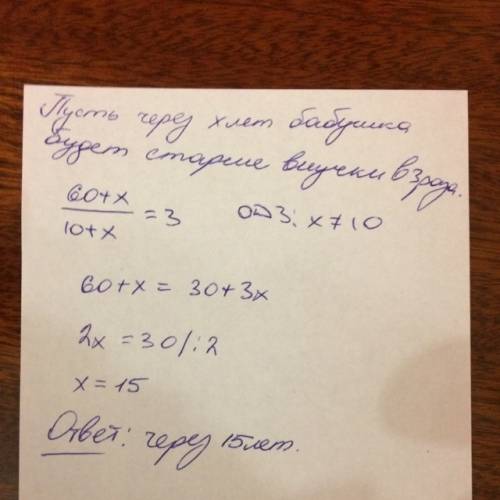 Пусть через x лет бабушка
будет старше внучки в 3 раза.
60+x / 10+x = 3 ОДЗ: x ≠ 10
60+x = 30+3x
2x = 30 /:2
x = 15
Ответ: через 15 лет.